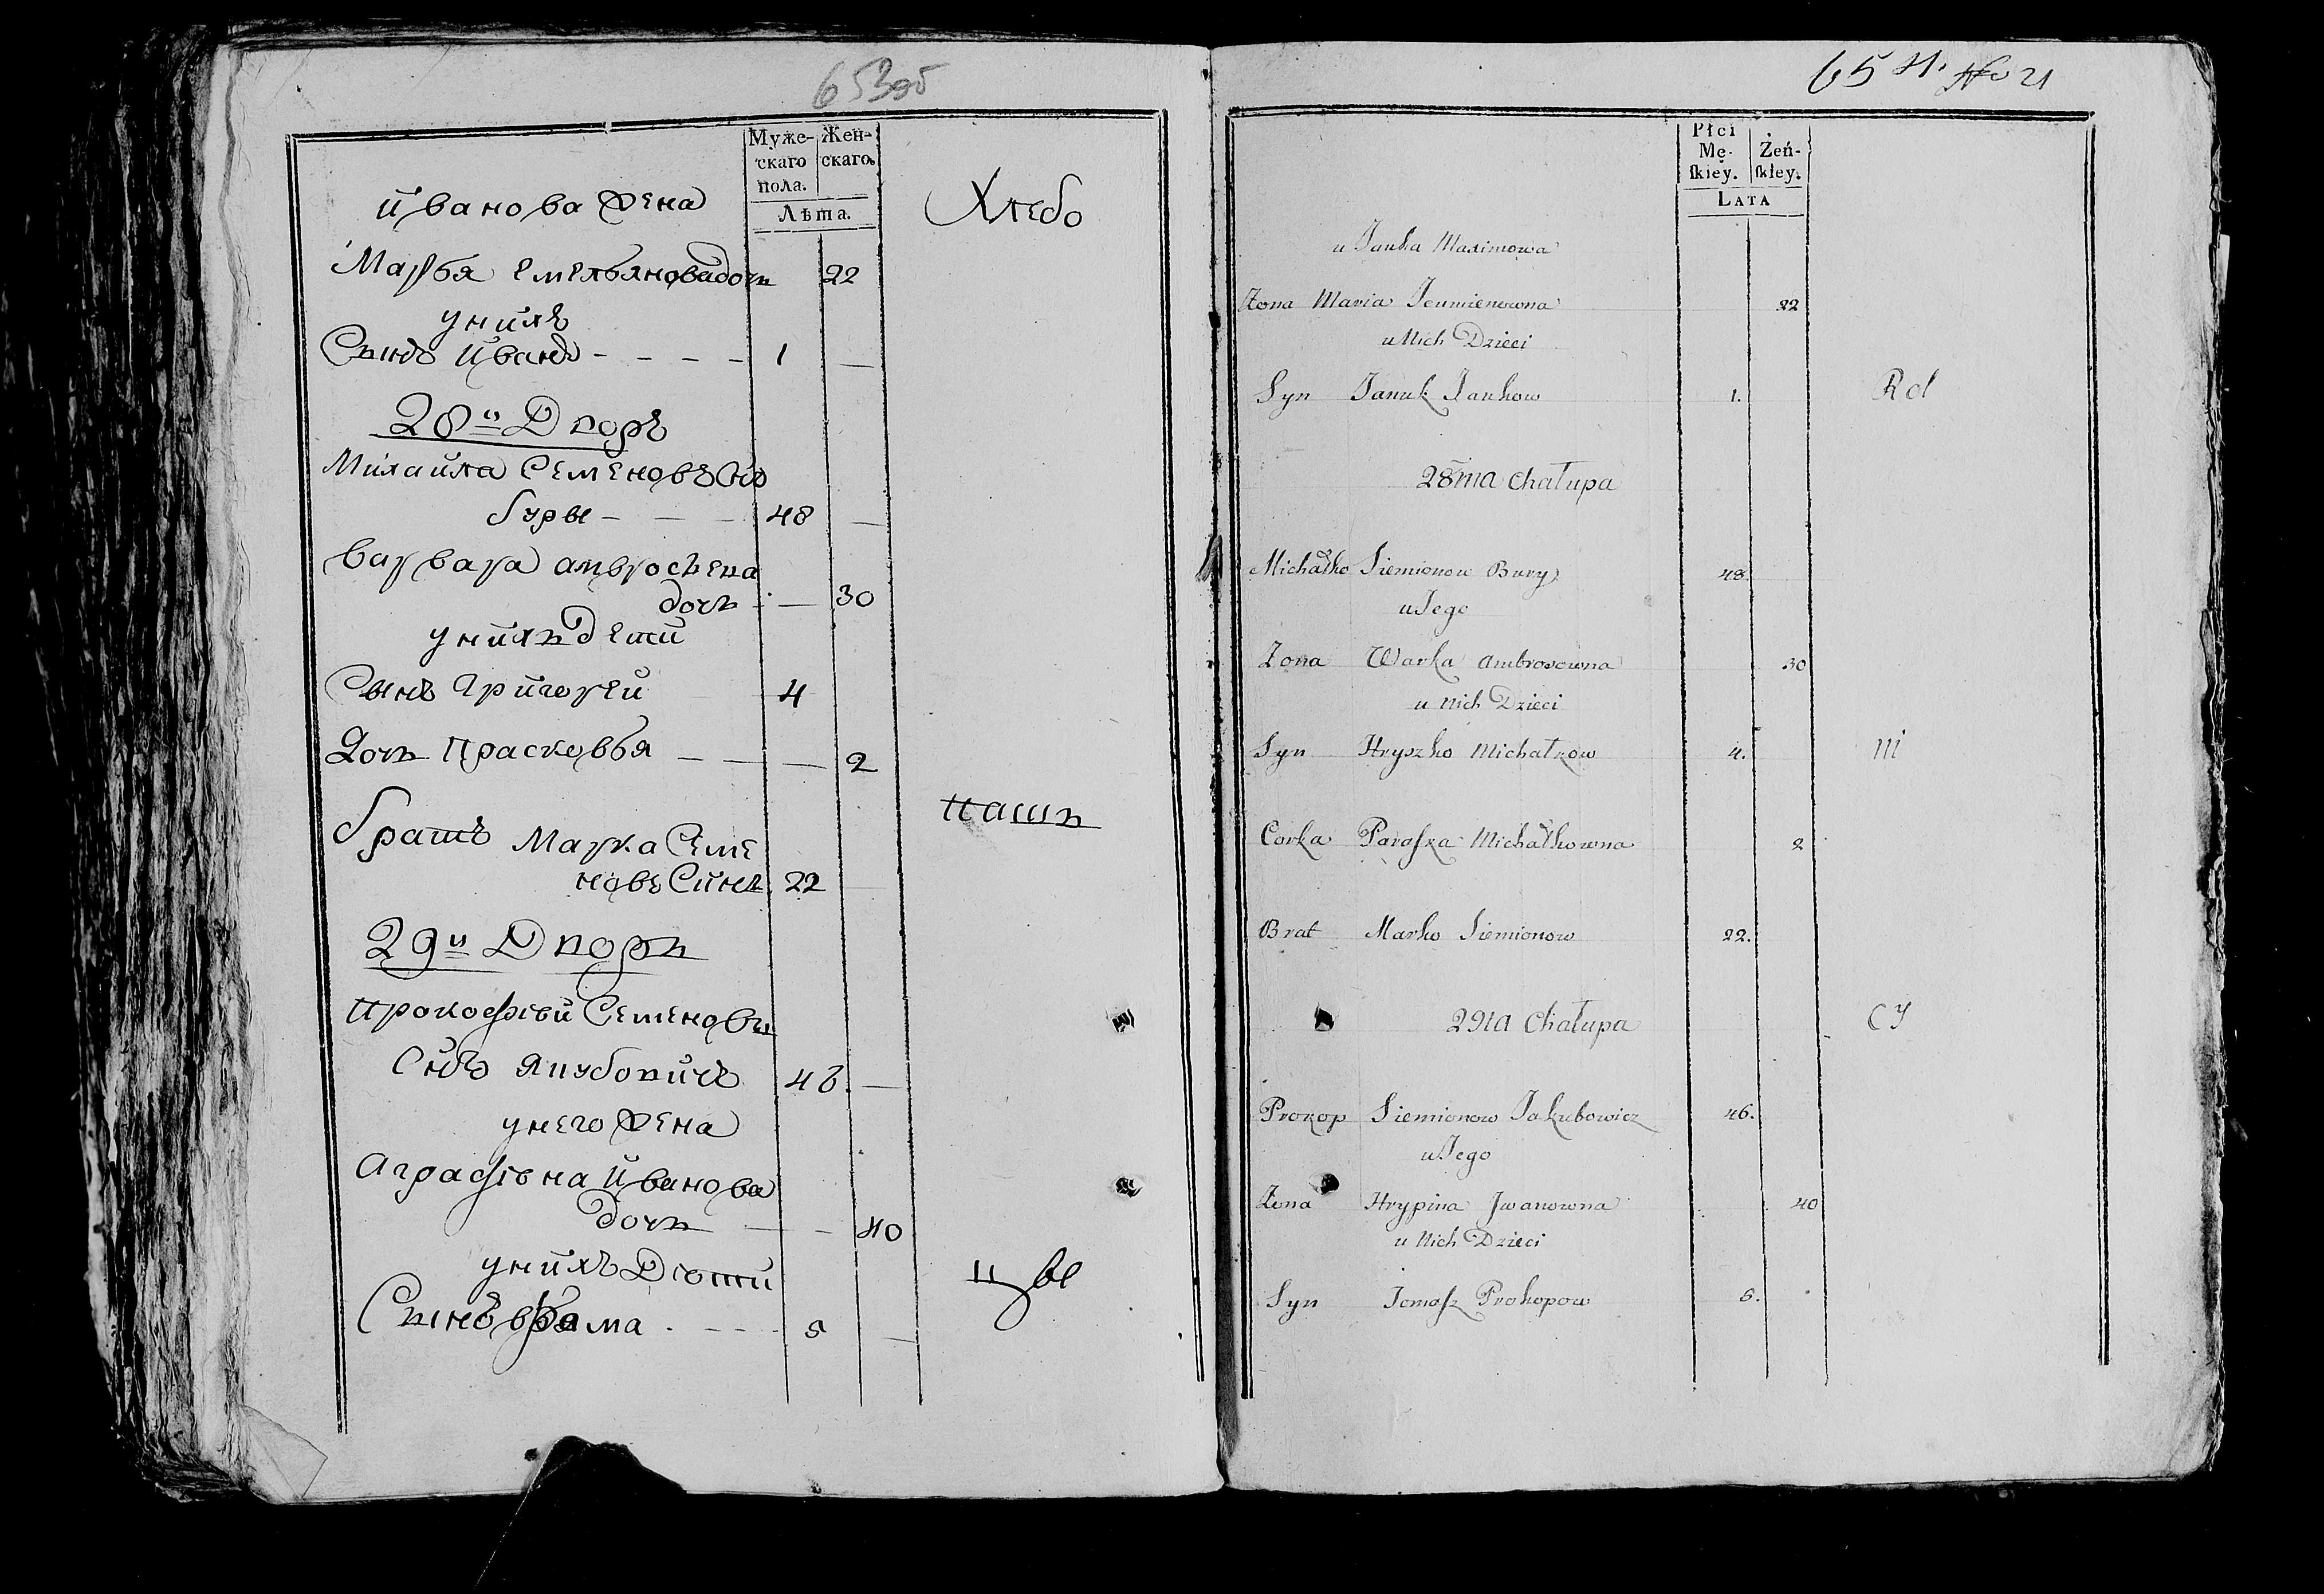 653об
Муже-
скаго
пола.
Жен-
скаго.
Лѣта.
Иванова жена
Марья Емельянова дочь 22
у нихъ
Сынъ Иванъ - - - - 1 —
Хлебо
28й Дворъ
Михайла Семеновъ Снъ
Буры - - - 48 —
Варвара Амвросьева
дочь - — 30
у нихъ дети
Сынъ Григорей 4
Дочь Прасковья — — — 2
Братъ Марка Семе
новъ Синъ 22 —
пашъ
29й Дворъ
Прокофiй Семеновъ
Снъ Якубовичъ 46. —
у него жена
Аграфiена Иванова
дочь — — 40
у нихъ Дiоти
Сынъ Фама - - - - 5 —
цы
65 Н. No 21
Płci
Mę-
ſkiey.
Żeń-
ſkiey.
LATA
u Janka Maximowa
Zona Maria Jeumienowna 22
u Nich Dzieci
Syn Januk Jankow 1.
Rol
28ma Chałupa
Michałko Siemionow Bury 48.
u Jego
Zona Warka Ambrosowna 30
u Nich Dzieci
Syn Hryszko Michałkow 4.
ni
Corka Paraſka Michałkowna 2
Brat Marko Siemionow 22.
29ta Chałupa
cy
Prokop Siemionow Jakubowicz 46.
u Jego
Zona Hrypina Jwanowna 40
u Nich Dzieci
Syn Tomaſz Prokopow 5.